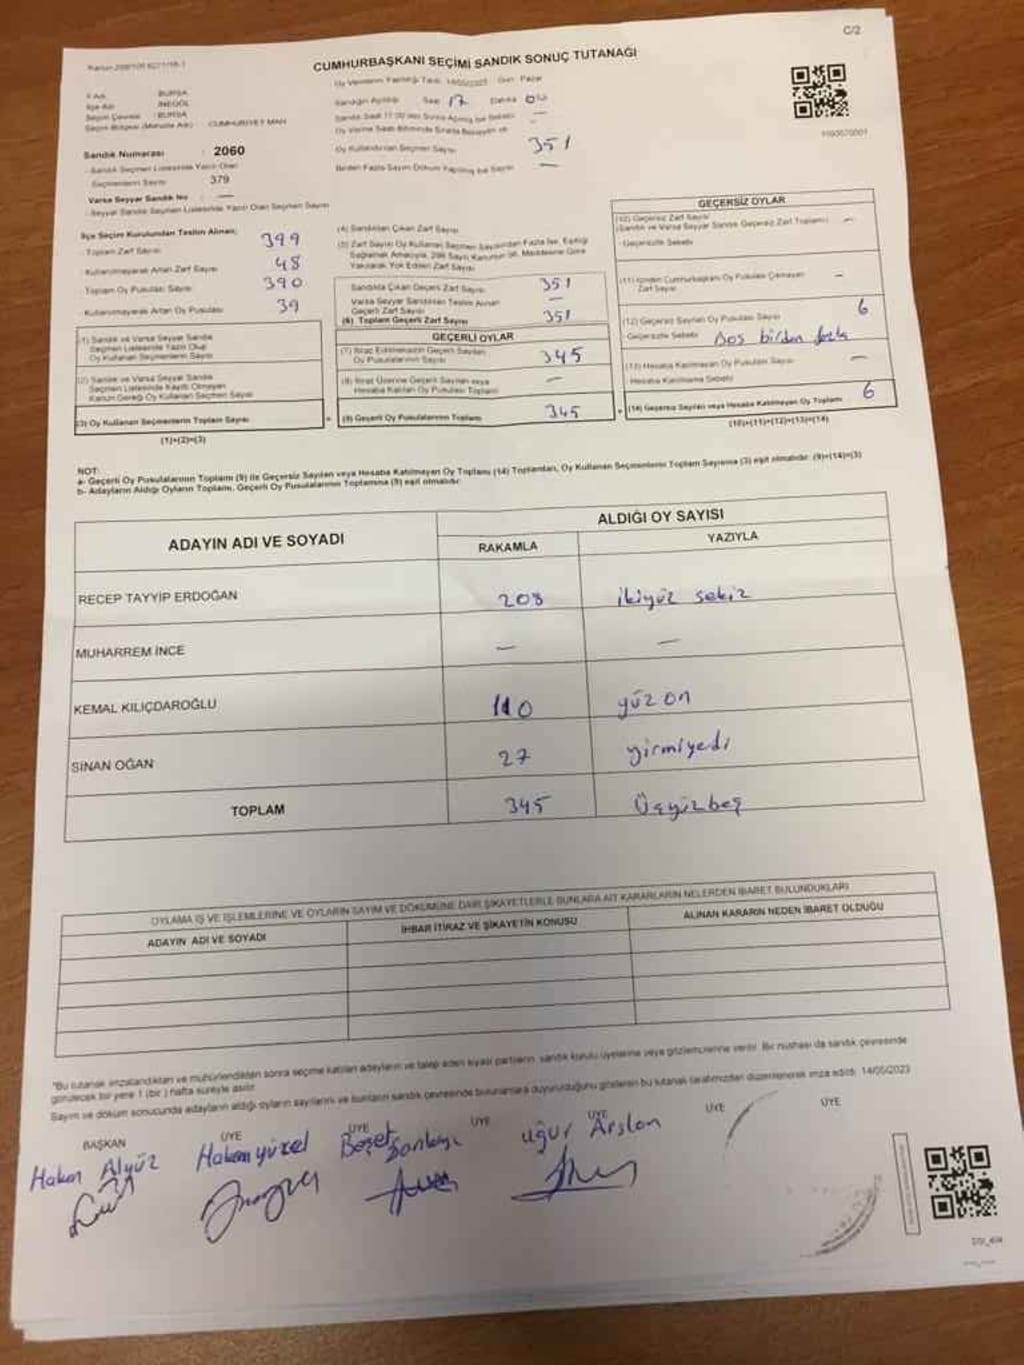 C/2
CUMHURBAŞKANI SEÇİMİ SANDIK SONUÇ TUTANAĞI
İl Adı : BURSA
İlçe Adı : İNEGÖL
Seçim Çevresi : BURSA
Seçim Bölgesi (Mahalle Adı) : CUMHURİYET MAH
Sandık Numarası : 2060
Sandık Seçmen Listesinde Yazılı Olan
Seçmenlerin Sayısı 379
Varsa Seyyar Sandık No : —
- Seyyar Sandık Seçmen Listesinde Yazılı Olan Seçmen Sayısı
Oy Kullandırılan Seçmen Sayısı 351
Birden Fazla Sayım Döküm Yapılmış ise Sayısı —
İlçe Seçim Kurulundan Teslim Alınan;
- Toplam Zarf Sayısı 399
- Kullanılmayarak Artan Zarf Sayısı 48
- Toplam Oy Pusulası Sayısı 390
- Kullanılmayarak Artan Oy Pusulası 39
(1) Sandık ve Varsa Seyyar Sandık
Seçmen Listesinde Yazılı Olup
Oy Kullanan Seçmenlerin Sayısı
(2) Sandık ve Varsa Seyyar Sandık
Seçmen Listesinde Kayıtlı Olmayan
Kanun Gereği Oy Kullanan Seçmen Sayısı
(3) Oy Kullanan Seçmenlerin Toplam Sayısı
(1)+(2)=(3)
(4) Sandıktan Çıkan Zarf Sayısı
(5) Zarf Sayısı Oy Kullanan Seçmen Sayısından Fazla İse, Eşitliği
Sağlamak Amacıyla, 298 Sayılı Kanunun 98. Maddesine Göre
Yakılarak Yok Edilen Zarf Sayısı
Sandıkta Çıkan Geçerli Zarf Sayısı 351
Varsa Seyyar Sandıktan Teslim Alınan
Geçerli Zarf Sayısı —
(6) Toplam Geçerli Zarf Sayısı 351
GEÇERLİ OYLAR
(7) İtiraz Edilmeksizin Geçerli Sayılan
Oy Pusulalarının Sayısı 345
(8) İtiraz Üzerine Geçerli Sayılan veya
Hesaba Katılan Oy Pusulası Toplamı —
(9) Geçerli Oy Pusulalarının Toplamı 345
GEÇERSİZ OYLAR
(10) Geçersiz Zarf Sayısı
(Sandık ve Varsa Seyyar Sandık Geçersiz Zarf Toplamı) —
(11) İçinden Cumhurbaşkanı Oy Pusulası Çıkmayan
Zarf Sayısı —
(12) Geçersiz Sayılan Oy Pusulası Sayısı 6
Geçersizlik Sebebi Boş birden fazla
(13) Hesaba Katılmayan Oy Pusulası Sayısı —
Hesaba Katılmama Sebebi
(14) Geçersiz Sayılan veya Hesaba Katılmayan Oy Toplamı 6
(10)+(11)+(12)+(13)=(14)
NOT:
a- Geçerli Oy Pusulalarının Toplamı (9) ile Geçersiz Sayılan veya Hesaba Katılmayan Oy Toplamı (14) Toplamları, Oy Kullanan Seçmenlerin Toplam Sayısına (3) eşit olmalıdır. (9)+(14)=(3)
b- Adayların Aldığı Oyların Toplamı, Geçerli Oy Pusulalarının Toplamına (9) eşit olmalıdır.
ADAYIN ADI VE SOYADI
ALDIĞI OY SAYISI
RAKAMLA YAZIYLA
RECEP TAYYİP ERDOĞAN 208 ikiyüz sekiz
MUHARREM İNCE — —
KEMAL KILIÇDAROĞLU 110 yüz on
SİNAN OĞAN 27 yirmiyedi
TOPLAM 345 Üçyüzbeş
OYLAMA İŞ VE İŞLEMLERİNE VE OYLARIN SAYIM VE DÖKÜMÜNE DAİR ŞİKAYETLERLE BUNLARA AİT KARARLARIN NELERDEN İBARET BULUNDUKLARI
ADAYIN ADI VE SOYADI İHBAR İTİRAZ VE ŞİKAYETİN KONUSU ALINAN KARARIN NEDEN İBARET OLDUĞU
"Bu tutanak imzalandıktan ve mühürlendikten sonra seçime katılan adayların ve talep eden siyasi partilerin sandık kurulu üyelerine veya gözlemcilerine verilir. Bir nüshası da sandık çevresinde
görülecek bir yere 1 (bir) hafta süreyle asılır.
Sayım ve döküm sonucunda adayların aldığı oyların sayılarını ve bunların sandık çevresinde bulunanlara duyurulduğunu gösteren bu tutanak tarafımızdan düzenlenerek imza edildi. 14/05/2023
BAŞKAN ÜYE ÜYE ÜYE ÜYE ÜYE ÜYE
Hakan Hakan yüzel uğur Arslan